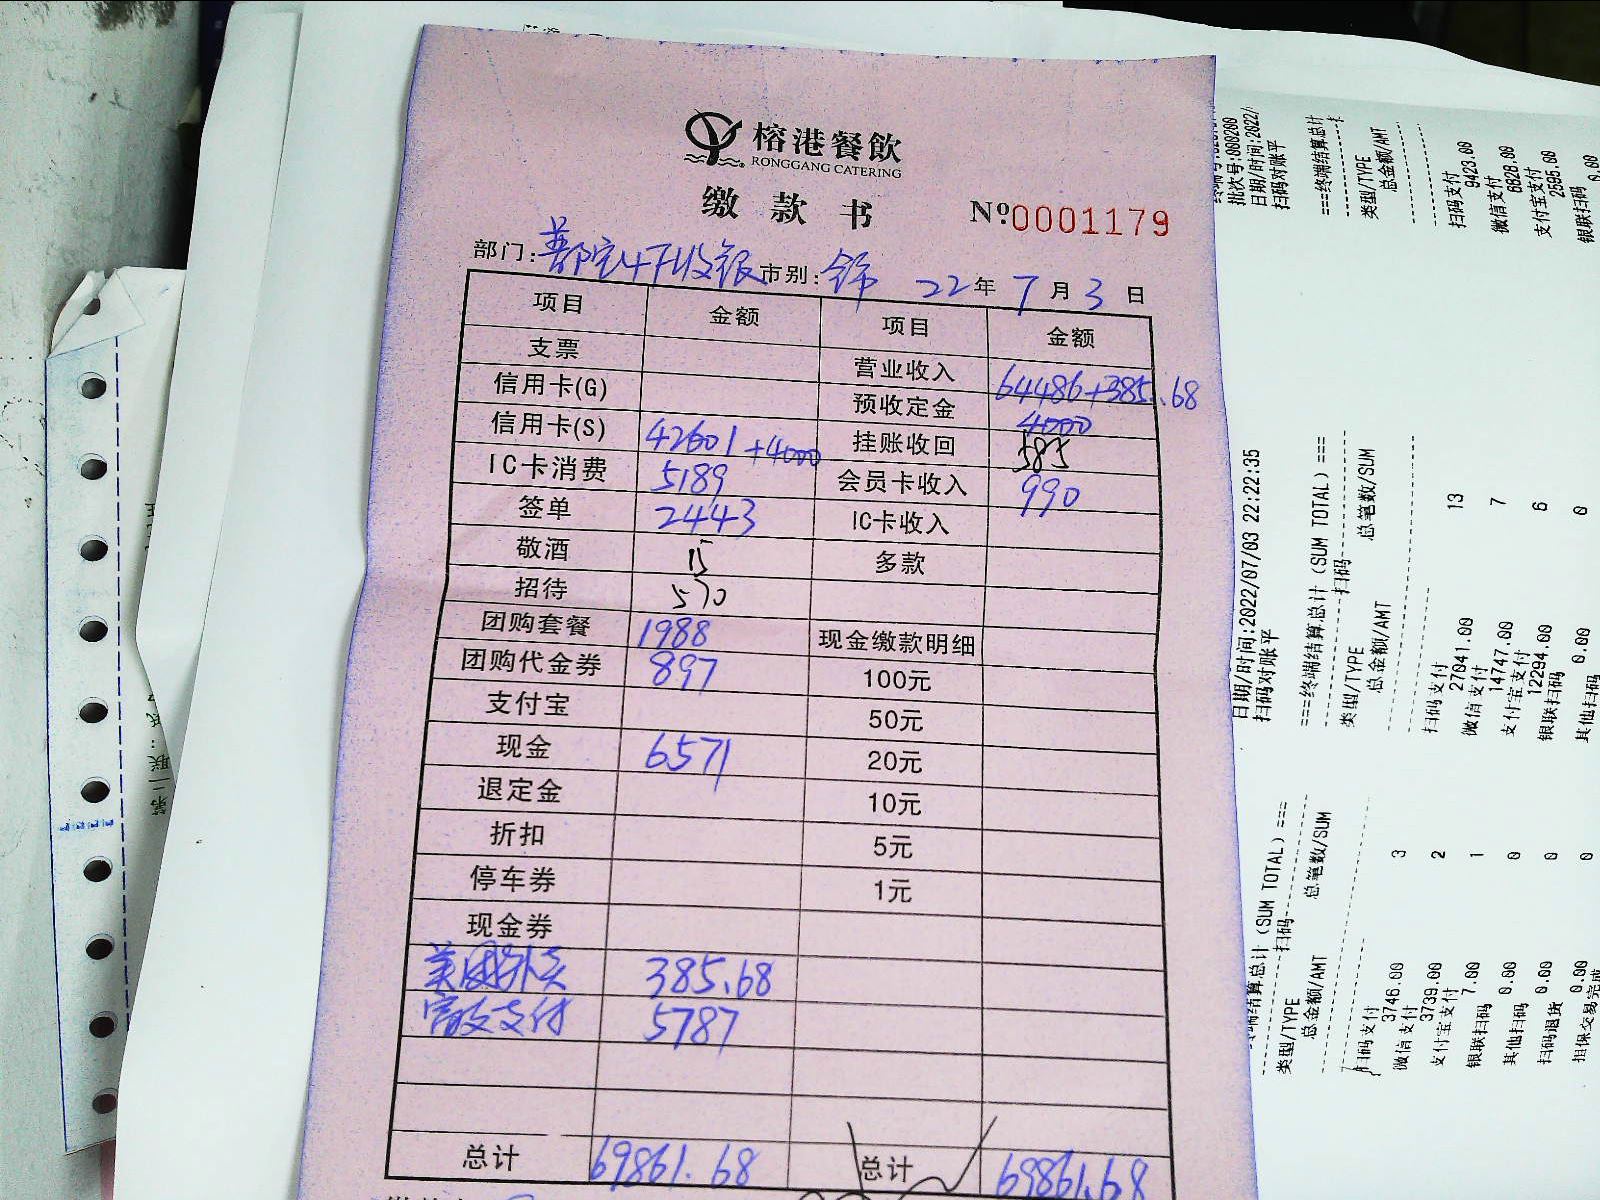 榕港餐飲
RONGGANG CATERING
缴款书
Nº0001179
部门: 4F收银 市别: 22年7月3日
项目 金额 项目 金额
支票 营业收入 64486+385.68
信用卡(G) 预收定金 4000
信用卡(S) 42601+4000 挂账收回 385
IC卡消费 5189 会员卡收入 990
签单 2443 IC卡收入
敬酒 15 多款
招待 570
团购套餐 1988 现金缴款明细
团购代金券 897 100元
支付宝 50元
现金 6571 20元
退定金 10元
折扣 5元
停车券 1元
现金券
美团外卖 385.68
支付 5787
总计 69861.68 总计 69861.68
批次号:000208
日期/时间:2022/
扫码对账平
===终端结算总计
类型/TYPE
总金额/AMT
扫码支付
9423.00
微信支付
6828.00
支付宝支付
2595.00
银联扫码
0.00
日期/时间:2022/07/03 22:22:35
扫码对账平
===终端结算总计(SUM TOTAL)===
扫码
类型/TYPE 总笔数/SUM
总金额/AMT
扫码支付 13
27041.00
微信支付 7
14747.00
支付宝支付 6
12294.00
银联扫码 0
0.00
其他扫码
终端结算总计(SUM TOTAL)===
扫码
类型/TYPE 总笔数/SUM
总金额/AMT
扫码支付 3
3746.00
微信支付 2
3739.00
支付宝支付 1
7.00
银联扫码 0
0.00
其他扫码 0
0.00
扫码退货 0
0.00
担保交易完成
第二联: